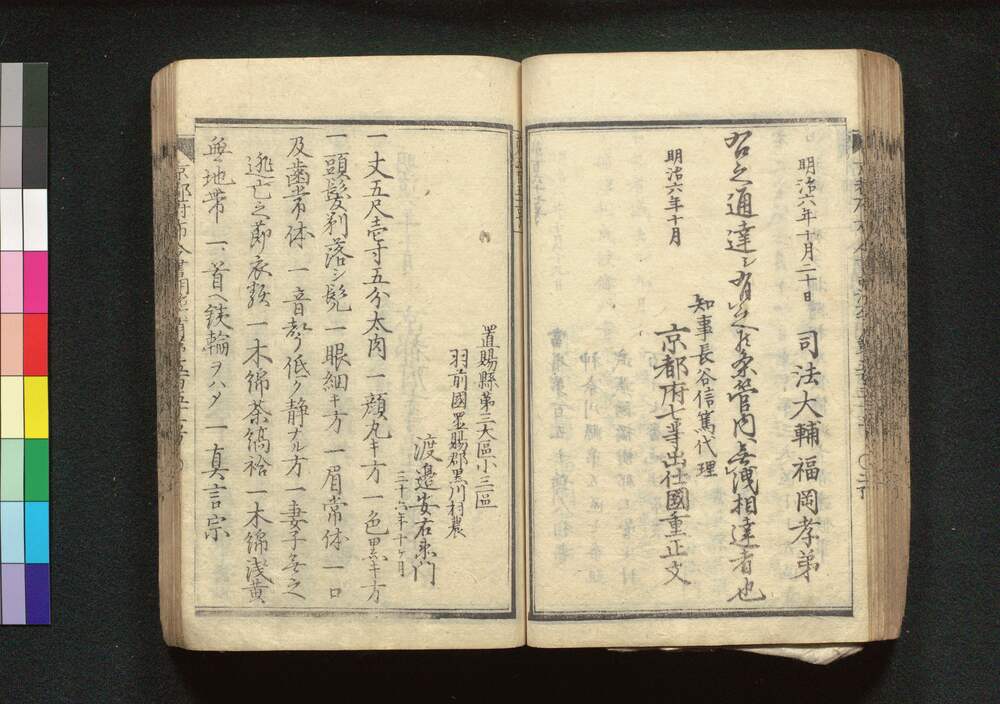 明治六年十月二十日　司法大輔福岡孝弟
右之通達シ有之候条管内ヘ無洩相達者也
明治六年十月
知事長谷信篤代理
京都府七等出仕國重正文
置賜縣第三大區小三區
羽前國置賜郡黒川村農
渡邉安右衛門
三十六年十ヶ月
一丈五尺壱寸五分太肉 一顔丸キ方 一色黒キ方
一頭髪剃落シ髡 一眼細キ方 一眉常体 一口
及歯常体 一音声低ク静ナル方 一妻子無之
逃亡之節衣類 一木綿茶縞袷 一木綿浅黄
無地帯 一首ヘ鉄輪ヲハメ 一真言宗